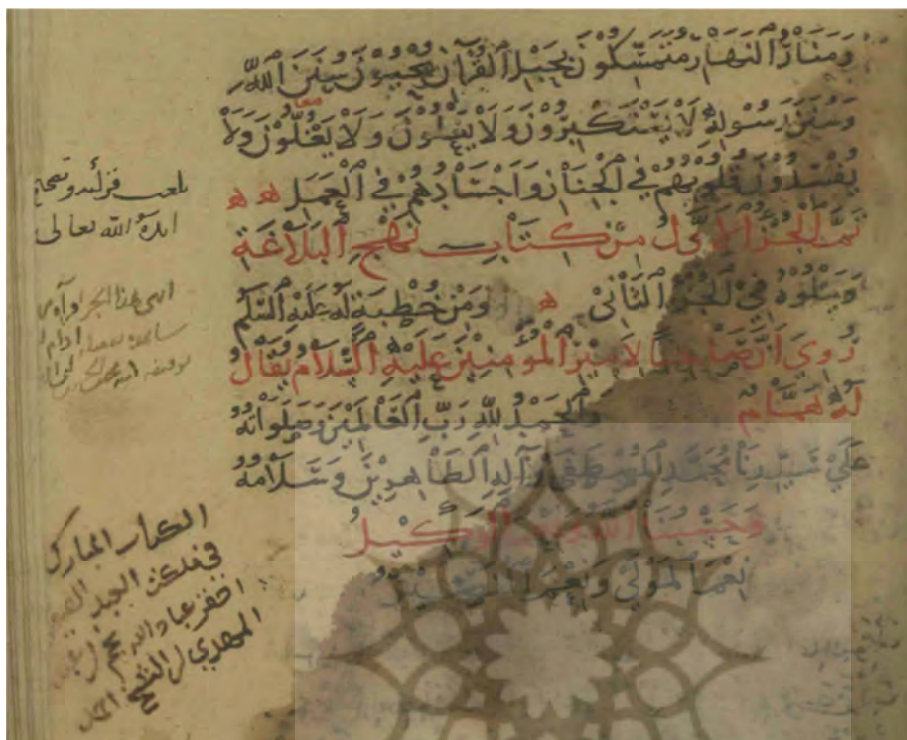 وَمَنَارُ النَّهَارِ مُتَمَسِّكُونَ بِحَبْلِ الْقُرْآنِ يُحْيُونَ سُنَنَ اللهِ
وَسُنَنَ رَسُولِهِ لَا يَسْتَكْبِرُونَ وَلَا يَعْلُونَ وَلَا يَغُلُّونَ وَلَا
معا
يُفْسِدُونَ قُلُوبُهُمْ فِي الْجِنَانِ وَأَجْسَادُهُمْ فِي الْعَمَلِ ه ه
تَمَّ الْجُزْءُ الْأَوَّلُ مِنْ كِتَابِ نَهْجِ الْبَلَاغَةِ
وَيَتْلُوهُ فِي الْجُزْءِ الثَّانِي ه وَمِنْ خُطْبَةٍ لَهُ عَلَيْهِ السَّلَمُ
رُوِيَ أَنَّ صَاحِبًا لِأَمِيرِ الْمُؤْمِنِينَ عَلَيْهِ السَّلَامُ يُقَالُ
لَهُ هَمَّامٌ وَالْحَمْدُ لِلَّهِ رَبِّ الْعَالَمِينَ وَصَلَوَاتُهُ
عَلَى سَيِّدِنَا مُحَمَّدٍ الْمُصْطَفَى وَآلِهِ الطَّاهِرِينَ وَسَلَامُهُ
وَحَسْبُنَا اللهُ وَنِعْمَ الْوَكِيلُ
نِعْمَ الْمَوْلَى وَنِعْمَ النَّصِيرُ
ايده الله تعالى
انهى هذا الجزء
الكتاب المبارك
في ملك العبد
افقر عباد الله
المهدي بن الشيخ